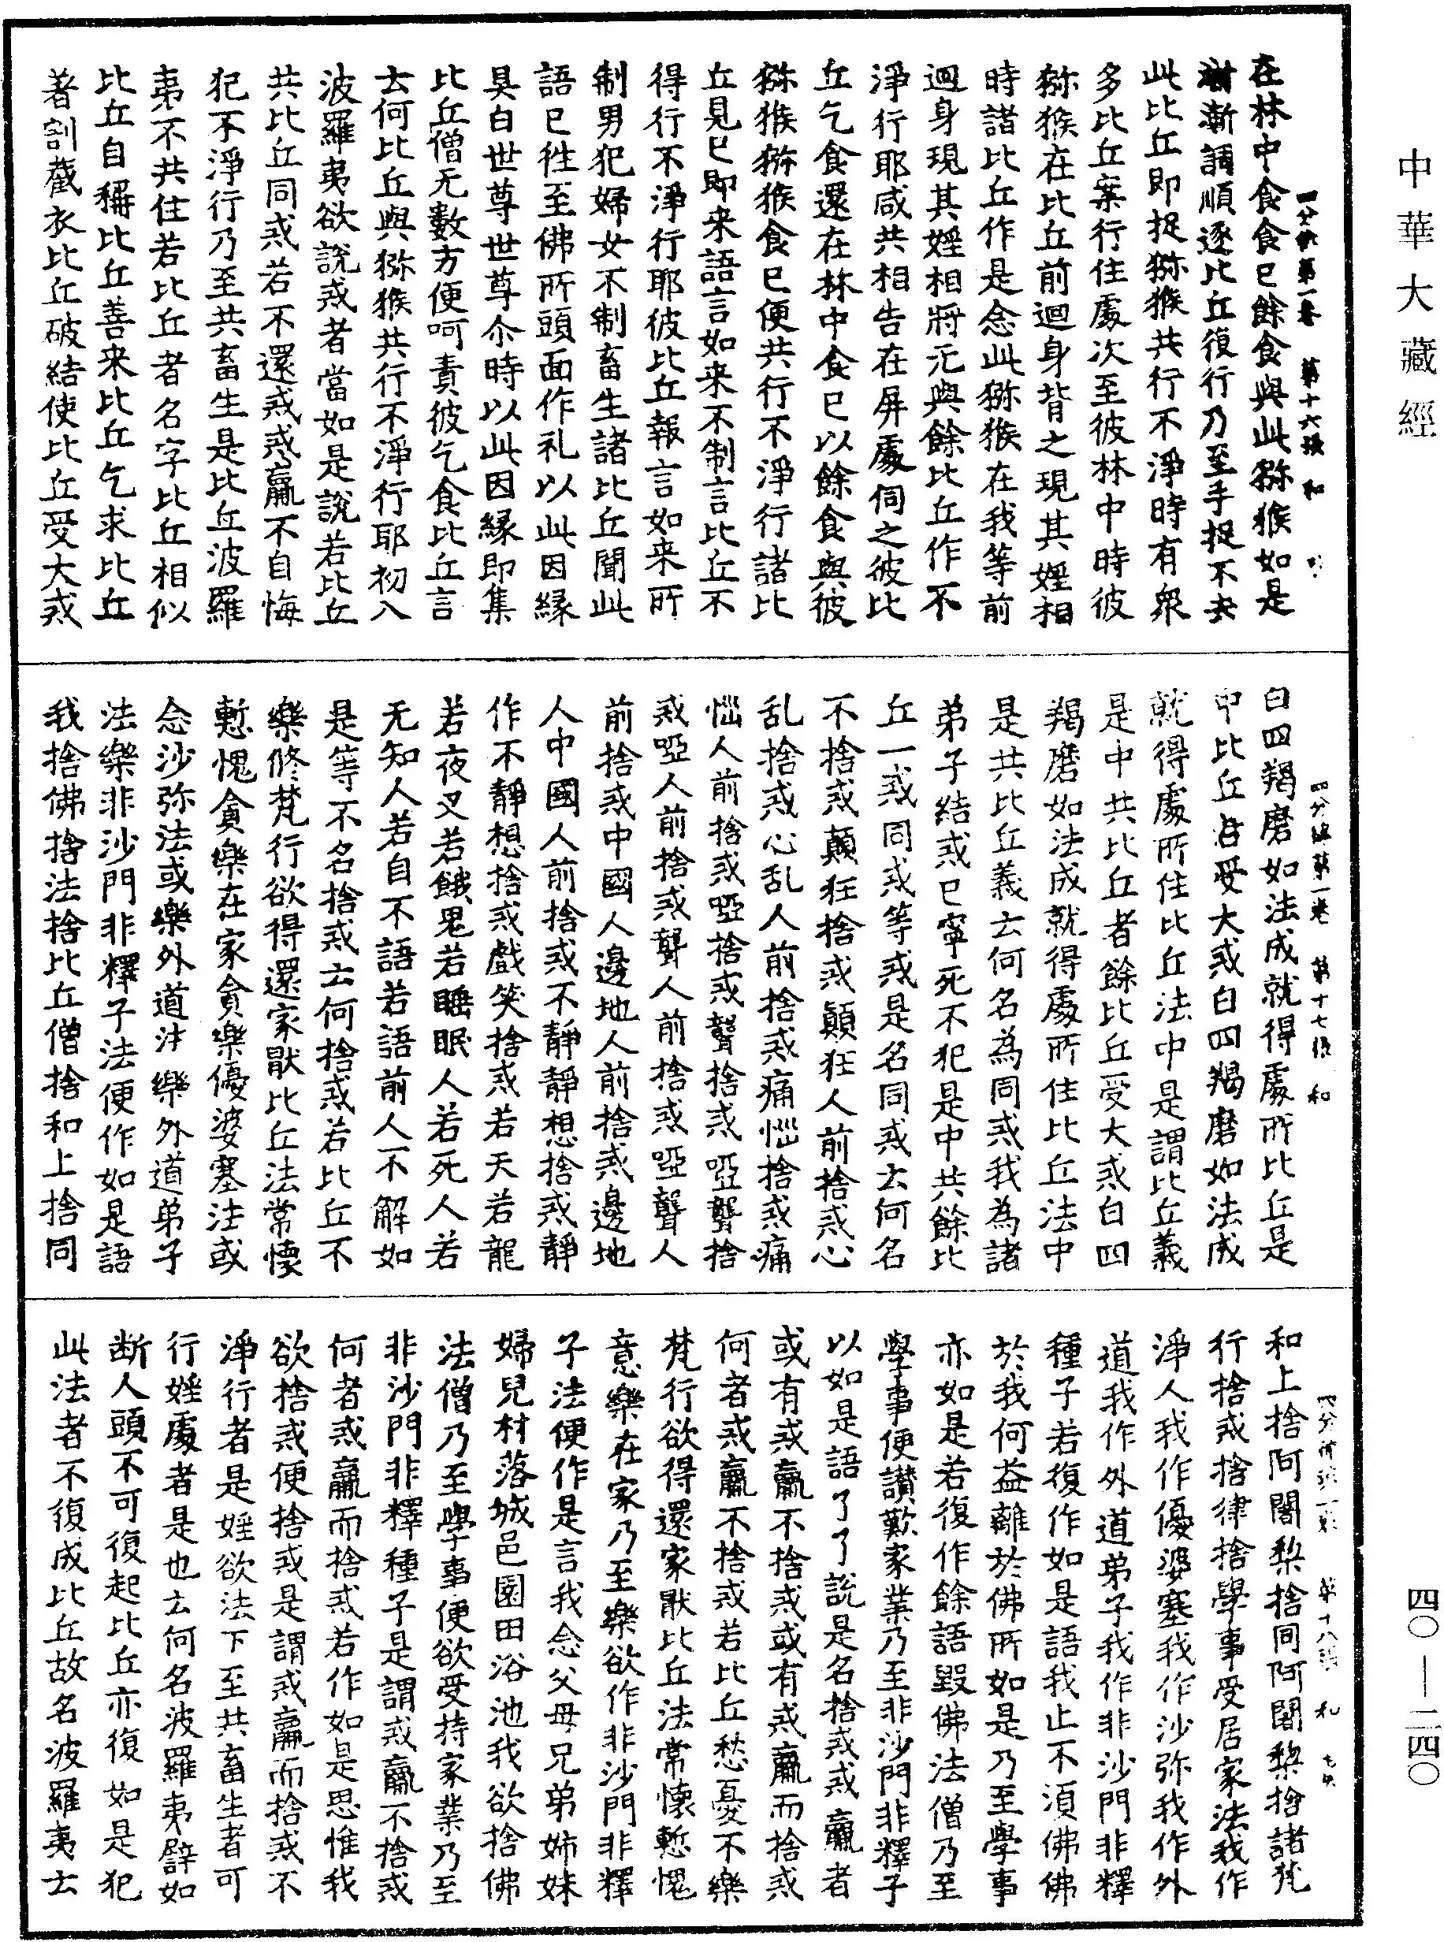 中華大藏經
四〇—二四〇
四分律第一卷 第十六張 和
在林中食食已餘食與此猕猴如是
漸漸調順逐比丘復行乃至手捉不去
此比丘即捉猕猴共行不淨時有衆
多比丘案行住處次至彼林中時彼
猕猴在比丘前迴身背之現其婬相
時諸比丘作是念此猕猴在我等前
迴身現其婬相將无與餘比丘作不
淨行耶咸共相告在屏處伺之彼比
丘乞食還在林中食已以餘食與彼
猕猴猕猴食已便共行不淨行諸比
丘見已即来語言如来不制言比丘不
得行不淨行耶彼比丘報言如来所
制男犯婦女不制畜生諸比丘聞此
語已徃至佛所頭面作礼以此因緣
具白世尊世尊尒時以此因緣即集
比丘僧无數方便呵責彼乞食比丘言
云何比丘與猕猴共行不淨行耶初入
波羅夷欲說戒者當如是說若比丘
共比丘同戒若不還戒戒羸不自悔
犯不淨行乃至共畜生是比丘波羅
夷不共住若比丘者名字比丘相似
比丘自稱比丘善来比丘乞求比丘
著割截衣比丘破結使比丘受大戒
四分律第一卷 第十七張 和
白四羯磨如法成就得處所比丘是
中比丘若受大戒白四羯磨如法成
就得處所住比丘法中是謂比丘義
是中共比丘者餘比丘受大戒白四
羯磨如法成就得處所住比丘法中
是共比丘義云何名為同戒我為諸
弟子結戒已寧死不犯是中共餘比
丘一戒同戒等戒是名同戒云何名
不捨戒顛狂捨戒顛狂人前捨戒心
乱捨戒心乱人前捨戒痛惱捨戒痛
惱人前捨戒啞捨戒聾捨戒啞聾捨
戒啞人前捨戒聾人前捨戒啞聾人
前捨戒中國人邊地人前捨戒邊地
人中國人前捨戒不靜靜想捨戒靜
作不靜想捨戒戲笑捨戒若天若龍
若夜叉若餓鬼若睡眠人若死人若
无知人若自不語若語前人不解如
是等不名捨戒云何捨戒若比丘不
樂修梵行欲得還家猒比丘法常懷
慙愧貪樂在家貪樂優婆塞法或
念沙弥法或樂外道法樂外道弟子
法樂非沙門非釋子法便作如是語
我捨佛捨法捨比丘僧捨和上捨同
四分律第一卷 第十八張 和
和上捨阿闍梨捨同阿闍梨捨諸梵
行捨戒捨律捨學事受居家法我作
淨人我作優婆塞我作沙弥我作外
道我作外道弟子我作非沙門非釋
種子若復作如是語我止不須佛佛
於我何益離於佛所如是乃至學事
亦如是若復作餘語毀佛法僧乃至
學事便讃歎家業乃至非沙門非釋子
以如是語了了說是名捨戒戒羸者
或有戒羸不捨戒或有戒羸而捨戒
何者戒羸不捨戒若比丘愁憂不樂
梵行欲得還家猒比丘法常懷慙愧
意樂在家乃至樂欲作非沙門非釋
子法便作是言我念父母兄弟姉妹
婦兒村落城邑園田浴池我欲捨佛
法僧乃至學事便欲受持家業乃至
非沙門非釋種子是謂戒羸不捨戒
何者戒羸而捨戒若作如是思惟我
欲捨戒便捨戒是謂戒羸而捨戒不
淨行者是婬欲法下至共畜生者可
行婬處者是也云何名波羅夷譬如
断人頭不可復起比丘亦復如是犯
此法者不復成比丘故名波羅夷云